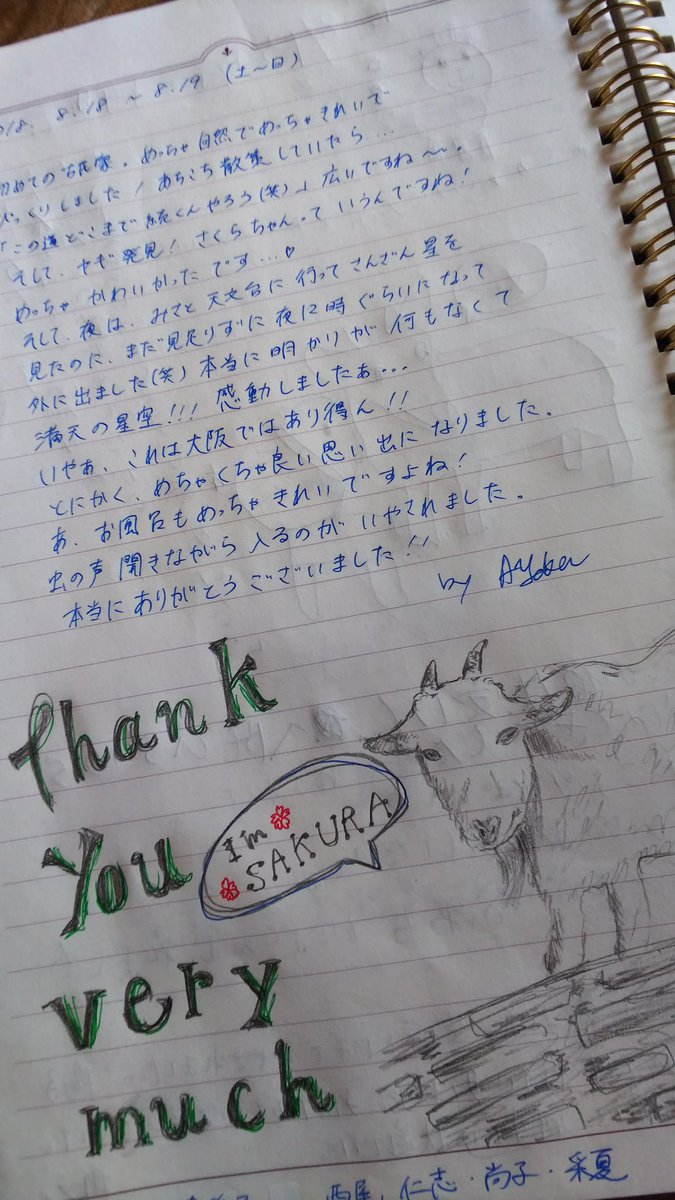 018. 8.18 ~ 8.19 (土~日)
初めての古民家。めっちゃ自然でめっちゃきれいで
びっくりしました！あちこち散策していたら…
「この道どこまで続くんやろう(笑)」広いですね～。
そして、ヤギ発見！さくらちゃんっていうんですね！
めっちゃかわいかったです…♡
そして、夜は、みさと天文台に行ってさんざん星を
見たのに、まだ見足りずに夜12時ぐらいになって
外に出ました(笑)本当に明かりが何もなくて
満天の星空!!!感動しましたぁ…
いやぁ、これは大阪ではあり得ん!!
とにかく、めちゃくちゃ良い思い出になりました。
あ、お風呂もめっちゃきれいですよね！
虫の声聞きながら入るのがいやされました。
本当にありがとうございました!!
by
Thank
You
very
much
I'm
SAKURA
仁志・尚子・采夏